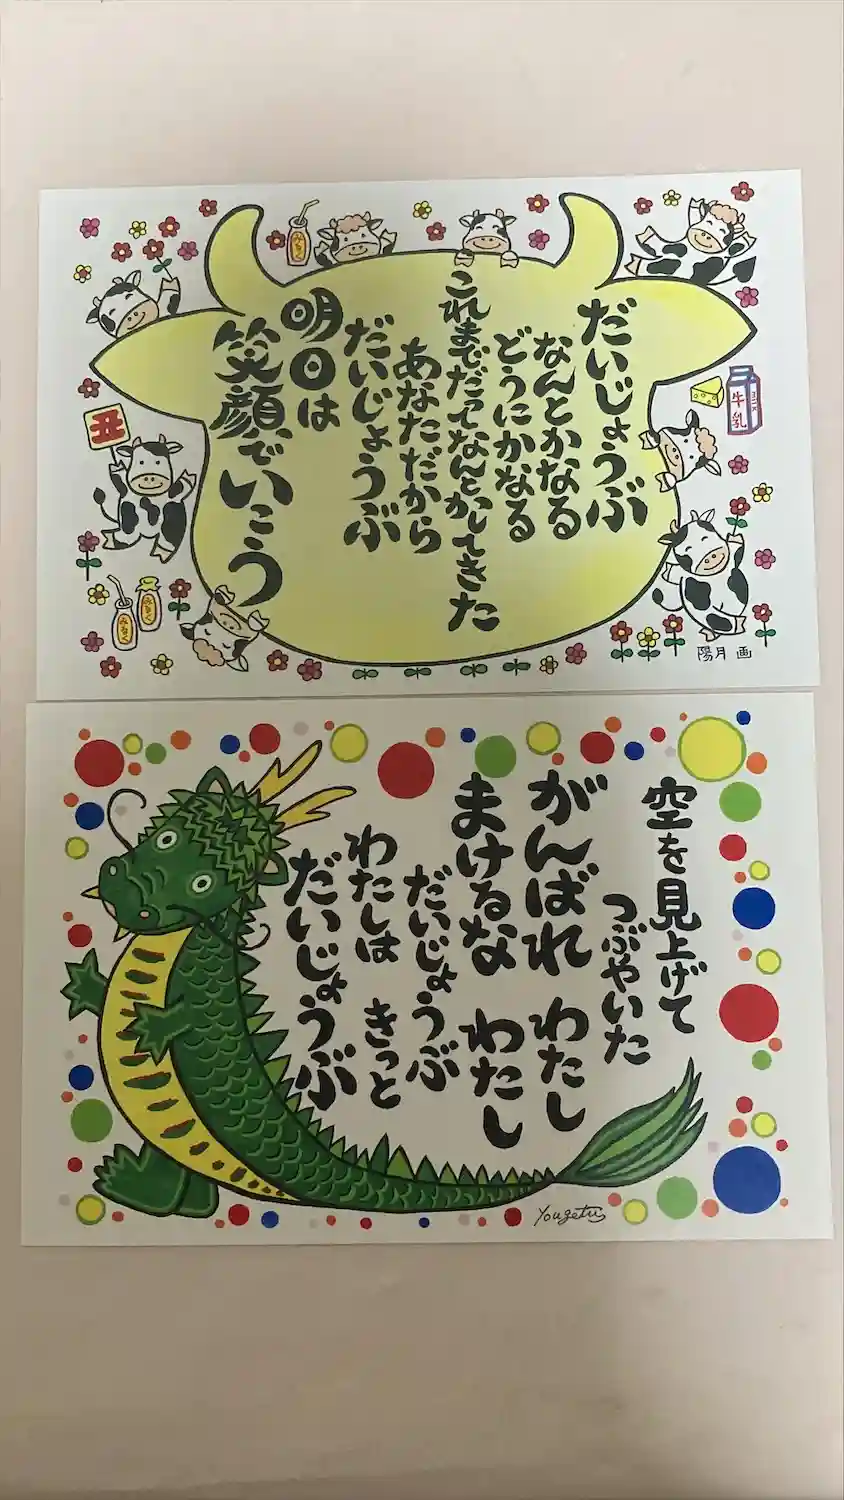 だいじょうぶ
なんとかなる
どうにかなる
これまでだってなんとかしてきた
あなただから
だいじょうぶ
明日は
笑顔でいこう
みるく
丑
みるく
みるく
牛乳
MILK
陽月 画
空を見上げて
つぶやいた
がんばれ わたし
まけるな わたし
だいじょうぶ
わたしは きっと
だいじょうぶ
Yougetu